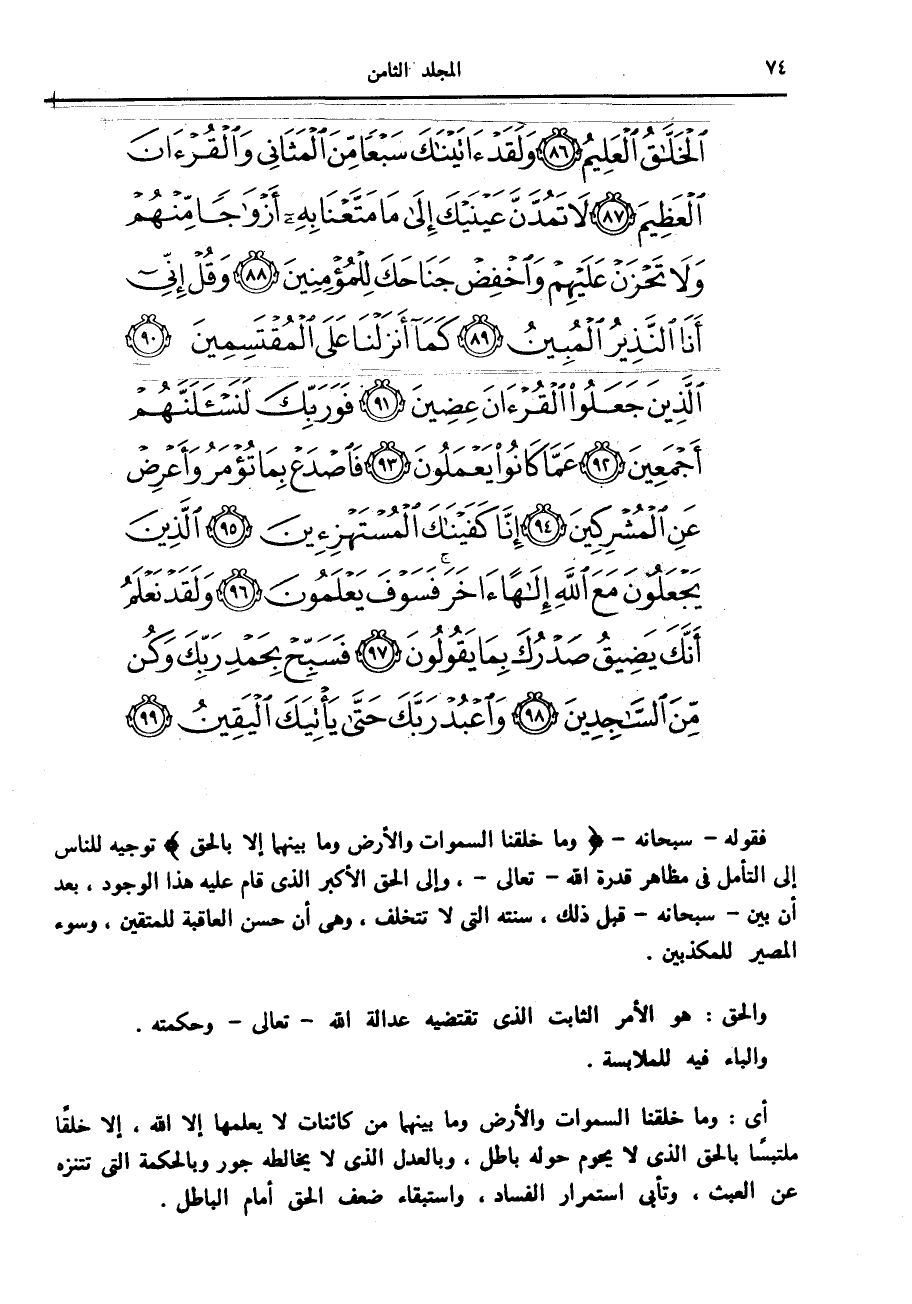 ٧٤
المجلد الثامن
ٱلْخَلَّـٰقُ ٱلْعَلِيمُ ﴿٨٦﴾ وَلَقَدْ ءَاتَيْنَـٰكَ سَبْعًا مِّنَ ٱلْمَثَانِى وَٱلْقُرْءَانَ
ٱلْعَظِيمَ ﴿٨٧﴾ لَا تَمُدَّنَّ عَيْنَيْكَ إِلَىٰ مَا مَتَّعْنَا بِهِۦٓ أَزْوَٰجًا مِّنْهُمْ
وَلَا تَحْزَنْ عَلَيْهِمْ وَٱخْفِضْ جَنَاحَكَ لِلْمُؤْمِنِينَ ﴿٨٨﴾ وَقُلْ إِنِّىٓ
أَنَا ٱلنَّذِيرُ ٱلْمُبِينُ ﴿٨٩﴾ كَمَآ أَنزَلْنَا عَلَى ٱلْمُقْتَسِمِينَ ﴿٩٠﴾
ٱلَّذِينَ جَعَلُوا۟ ٱلْقُرْءَانَ عِضِينَ ﴿٩١﴾ فَوَرَبِّكَ لَنَسْـَٔلَنَّهُمْ
أَجْمَعِينَ ﴿٩٢﴾ عَمَّا كَانُوا۟ يَعْمَلُونَ ﴿٩٣﴾ فَٱصْدَعْ بِمَا تُؤْمَرُ وَأَعْرِضْ
عَنِ ٱلْمُشْرِكِينَ ﴿٩٤﴾ إِنَّا كَفَيْنَـٰكَ ٱلْمُسْتَهْزِءِينَ ﴿٩٥﴾ ٱلَّذِينَ
يَجْعَلُونَ مَعَ ٱللَّهِ إِلَـٰهًا ءَاخَرَ ۚ فَسَوْفَ يَعْلَمُونَ ﴿٩٦﴾ وَلَقَدْ نَعْلَمُ
أَنَّكَ يَضِيقُ صَدْرُكَ بِمَا يَقُولُونَ ﴿٩٧﴾ فَسَبِّحْ بِحَمْدِ رَبِّكَ وَكُن
مِّنَ ٱلسَّـٰجِدِينَ ﴿٩٨﴾ وَٱعْبُدْ رَبَّكَ حَتَّىٰ يَأْتِيَكَ ٱلْيَقِينُ ﴿٩٩﴾
فقوله - سبحانه - ﴿ وما خلقنا السموات والأرض وما بينهما إلا بالحق ﴾ توجيه للناس
إلى التأمل فى مظاهر قدرة الله - تعالى - ، وإلى الحق الأكبر الذى قام عليه هذا الوجود ، بعد
أن بين - سبحانه - قبل ذلك ، سنته التى لا تتخلف ، وهى أن حسن العاقبة للمتقين ، وسوء
المصير للمكذبين .
والحق : هو الأمر الثابت الذى تقتضيه عدالة الله - تعالى - وحكمته .
والباء فيه للملابسة .
أى : وما خلقنا السموات والأرض وما بينهما من كائنات لا يعلمها إلا الله ، إلا خلقًا
ملتبسًا بالحق الذى لا يحوم حوله باطل ، وبالعدل الذى لا يخالطه جور وبالحكمة التى تتنزه
عن العبث ، وتأبى استمرار الفساد ، واستبقاء ضعف الحق أمام الباطل .